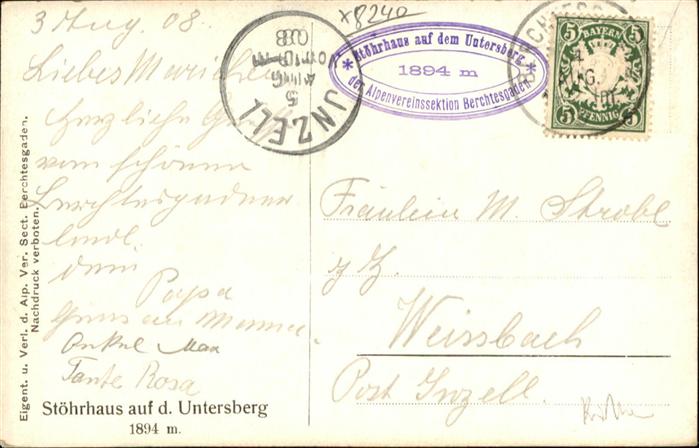 3 Aug. 08.
Liebes Mariechen
Herzliche Grüße
vom schönen
Berchtesgadener
Landl.
Dein
Papa
Gruss an Mama
Onkel Max
Tante Rosa
Stöhrhaus auf d. Untersberg
1894 m.
Eigent. u. Verl. d. Alp. Ver. Sect. Berchtesgaden.
Nachdruck verboten.
INZELL
5
AUG
08
x8240
* Stöhrhaus auf dem Untersberg *
1894 m
der Alpenvereinssektion Berchtesgaden
5 BAYERN 5
5 PFENNIG 5
Fräulein M. Strobl
z. Z.
Weissbach
Post Inzell.